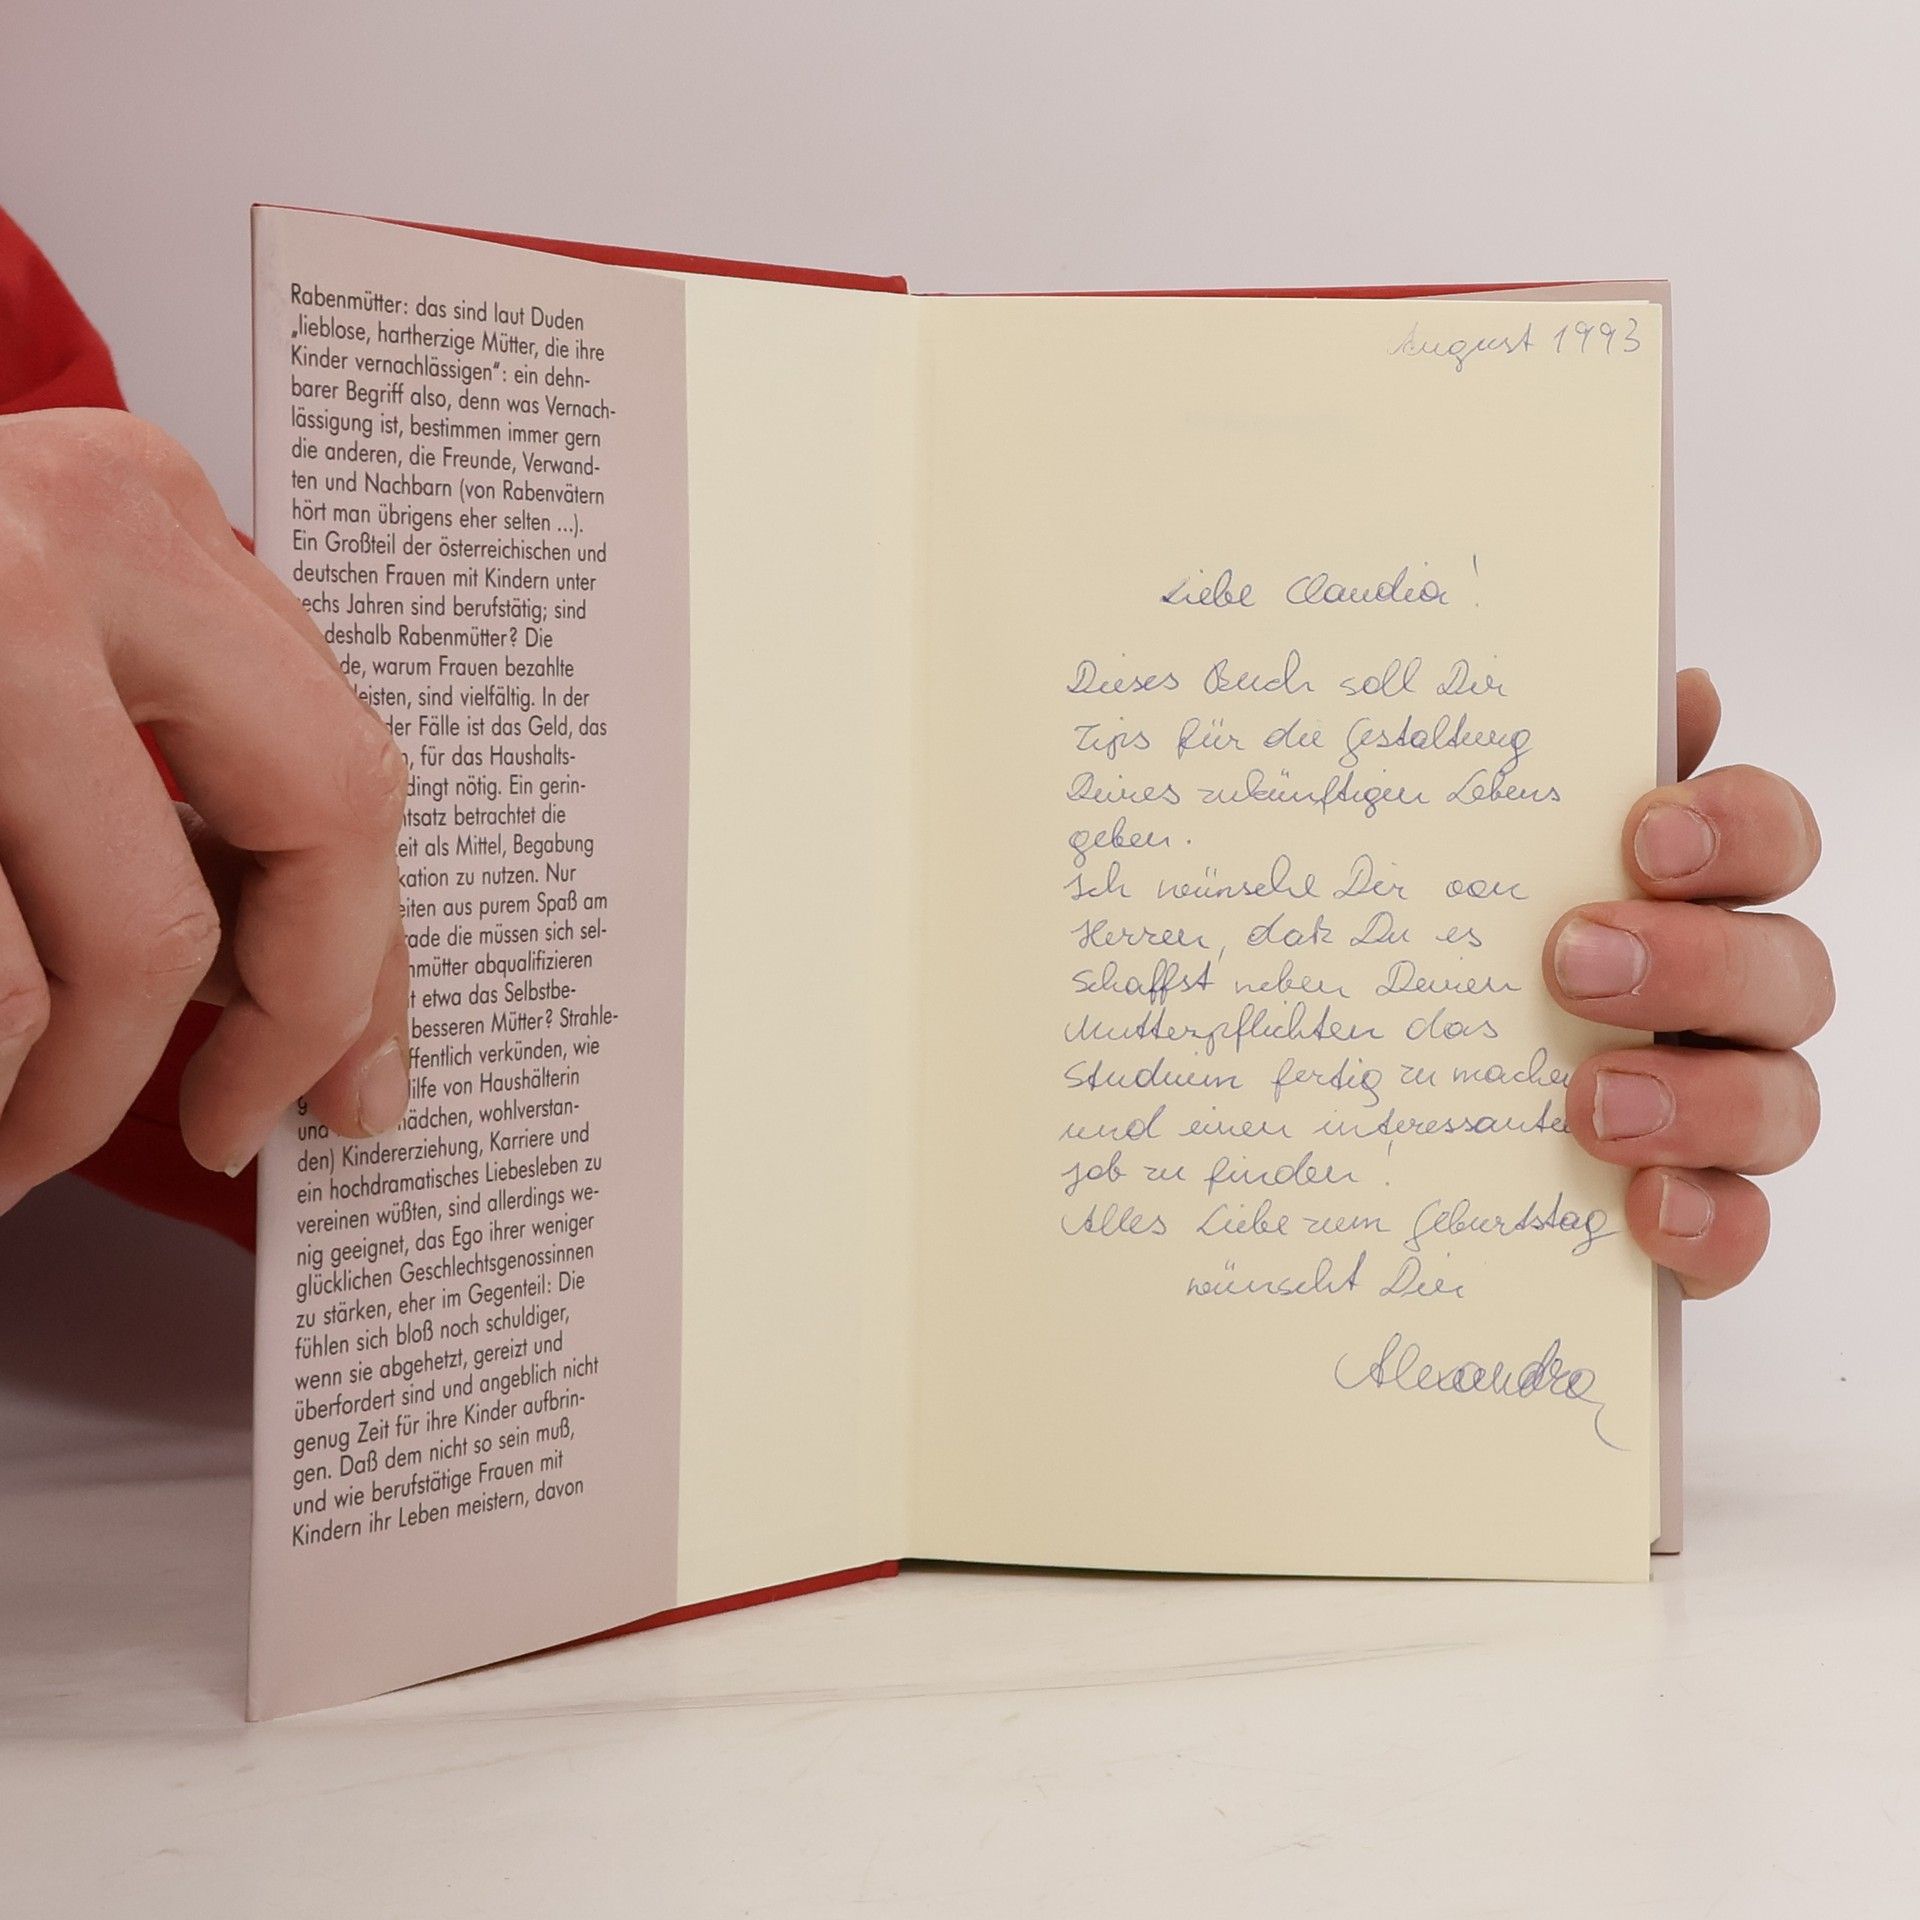 Rabenmütter: das sind laut Duden
„lieblose, hartherzige Mütter, die ihre
Kinder vernachlässigen“: ein dehn-
barer Begriff also, denn was Vernach-
lässigung ist, bestimmen immer gern
die anderen, die Freunde, Verwand-
ten und Nachbarn (von Rabenvätern
hört man übrigens eher selten ...).
Ein Großteil der österreichischen und
deutschen Frauen mit Kindern unter
echs Jahren sind berufstätig; sind
deshalb Rabenmütter? Die
de, warum Frauen bezahlte
leisten, sind vielfältig. In der
der Fälle ist das Geld, das
, für das Haushalts-
dingt nötig. Ein gerin-
tsatz betrachtet die
eit als Mittel, Begabung
kation zu nutzen. Nur
eiten aus purem Spaß am
rade die müssen sich sel-
nmütter abqualifizieren
t etwa das Selbstbe-
besseren Mütter? Strahle-
ffentlich verkünden, wie
g ilfe von Haushälterin
und ädchen, wohlverstan-
den) Kindererziehung, Karriere und
ein hochdramatisches Liebesleben zu
vereinen wüßten, sind allerdings we-
nig geeignet, das Ego ihrer weniger
glücklichen Geschlechtsgenossinnen
zu stärken, eher im Gegenteil: Die
fühlen sich bloß noch schuldiger,
wenn sie abgehetzt, gereizt und
überfordert sind und angeblich nicht
genug Zeit für ihre Kinder aufbrin-
gen. Daß dem nicht so sein muß,
und wie berufstätige Frauen mit
Kindern ihr Leben meistern, davon
August 1993
Liebe Claudia!
Dieses Buch soll Dir
Tips für die Gestaltung
Deines zukünftigen Lebens
geben.
Ich wünsche Dir von
Herzen, daß Du es
schaffst neben Deinen
Mutterpflichten das
Studium fertig zu mache
und einen interessante
Job zu finden!
Alles Liebe zum Geburtstag
wünscht Dir
Alexandra